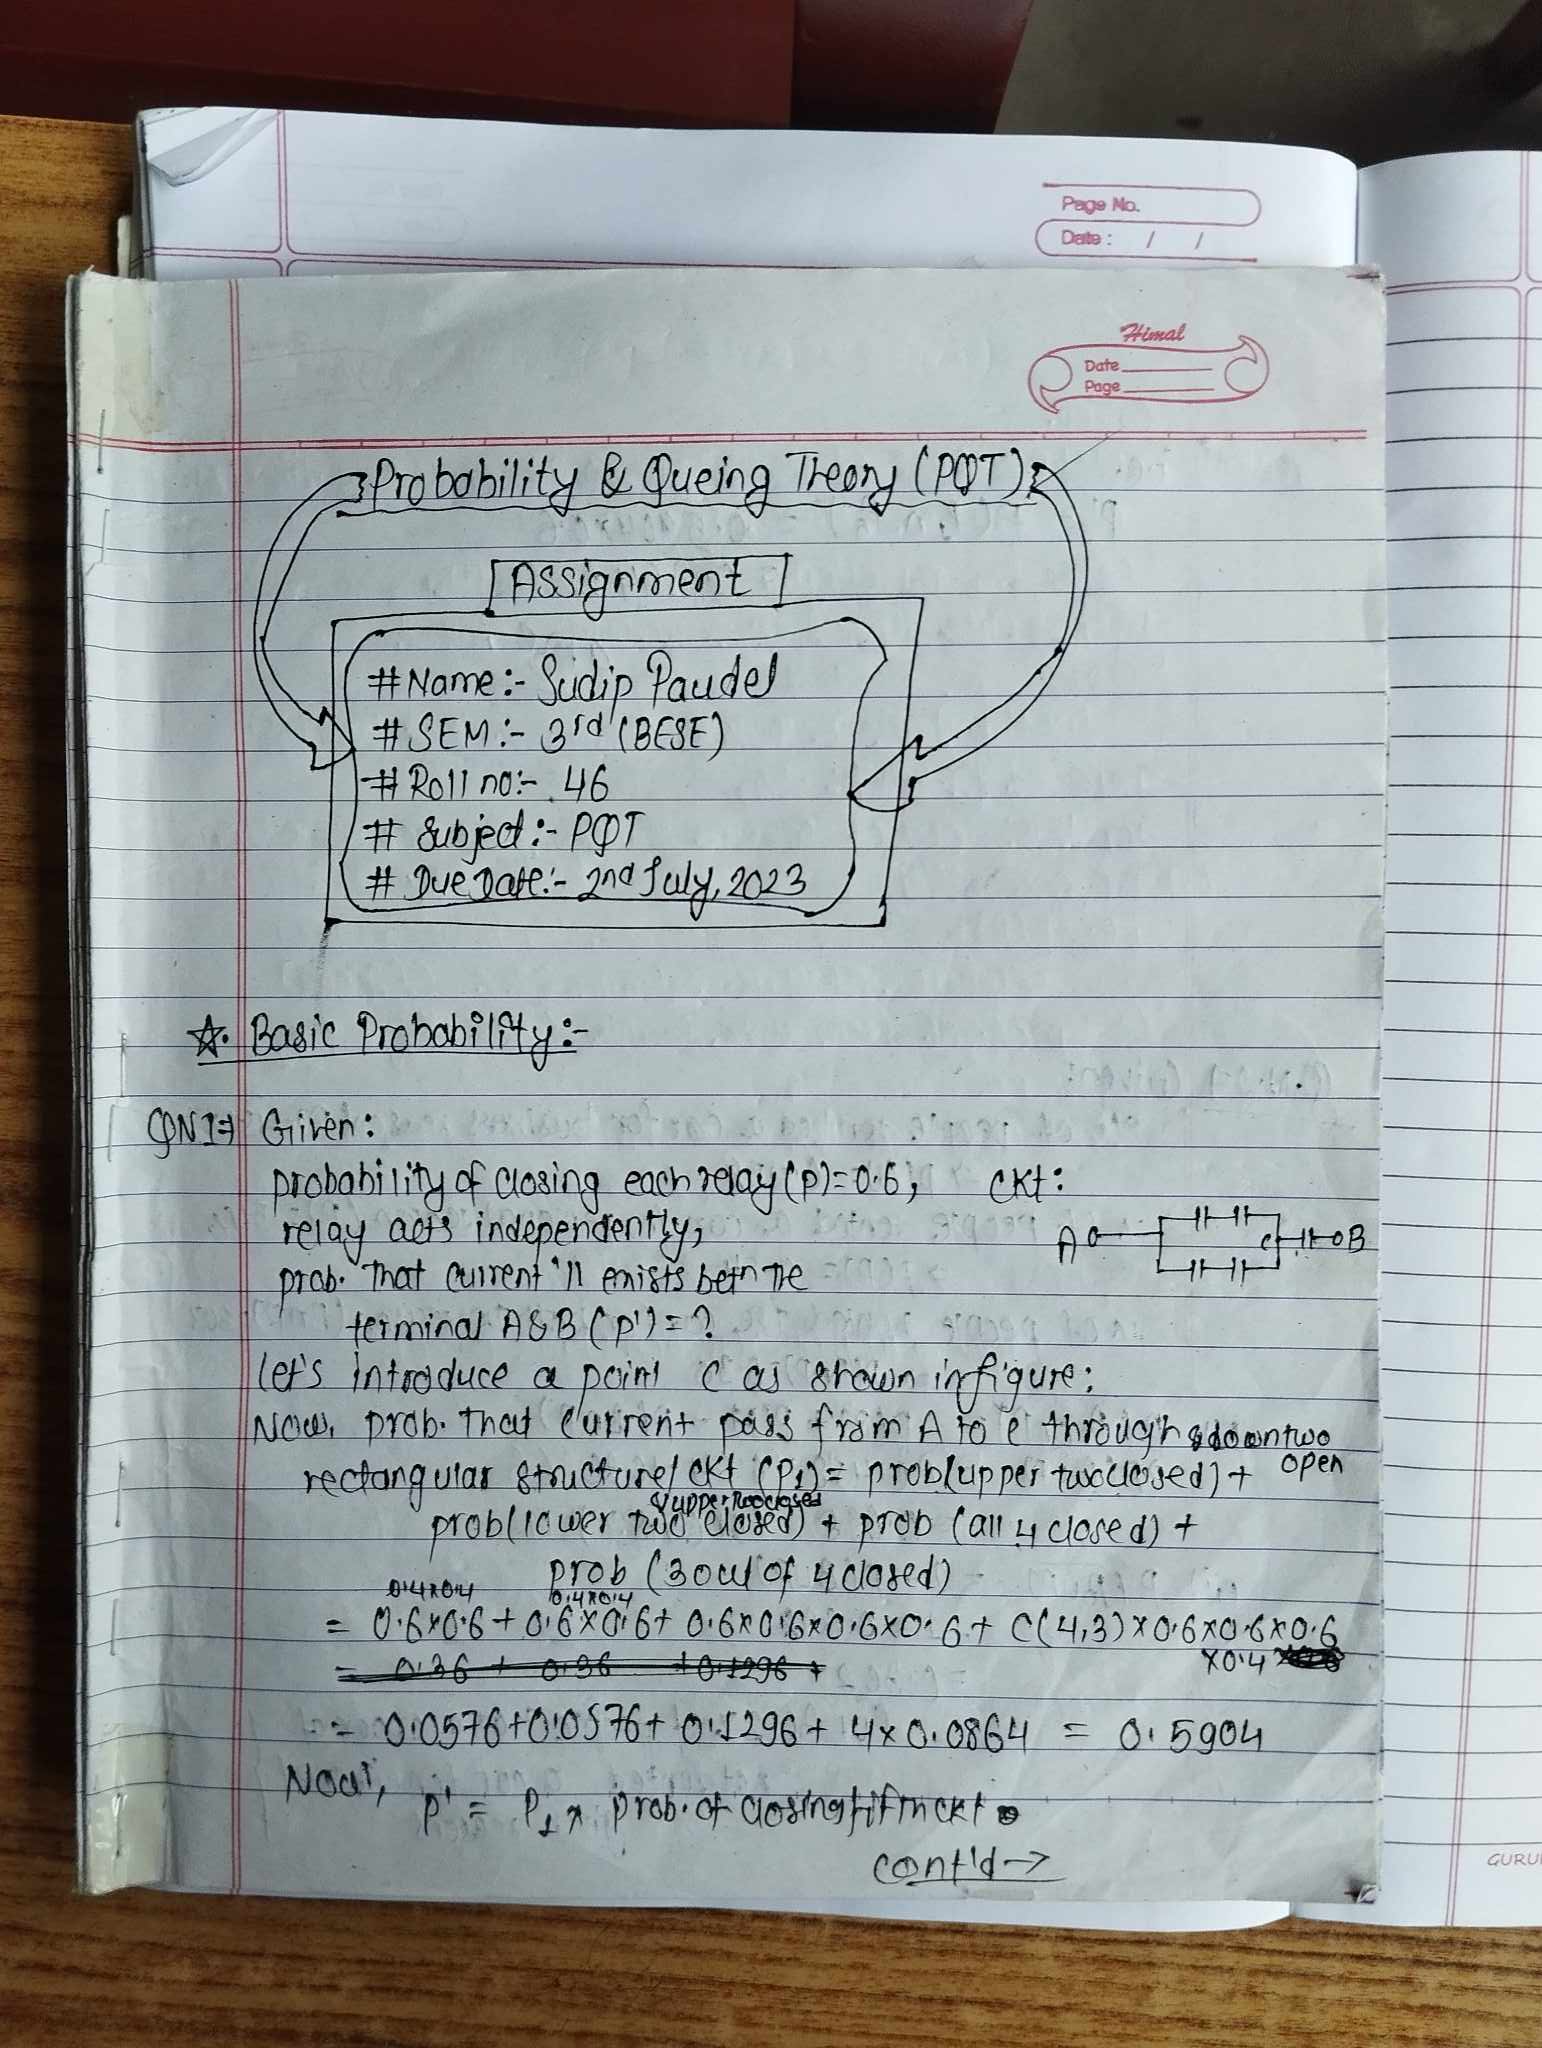 Page No.
Date : / /
Himal
Date
Page
Probability & Queing Theory (PQT)
Assignment
# Name :- Sudip Paudel
# SEM :- 3rd (BESE)
# Roll no :- 46
# Subject :- PQT
# Due Date :- 2nd July, 2023
☆. Basic Probability :-
QN1⇒ Given :
probability of closing each relay (p) = 0.6, ckt :
relay acts independently, A B
prob. that current 'll exists betn the c
terminal A & B (p') = ?
Let's introduce a point c as shown in figure :
Now, prob. that current pass from A to c through
rectangular structure/ckt (P1) = prob(upper two closed & down two open) +
prob(lower two closed & upper two closed) + prob (all 4 closed) +
prob (3 out of 4 closed)
= 0.6×0.6 ×0.4×0.4 + 0.6×0.6 ×0.4×0.4 + 0.6×0.6×0.6×0.6 + C(4,3)×0.6×0.6×0.6 ×0.4
= 0.36 + 0.36 + 0.1296 +
= 0.0576 + 0.0576 + 0.1296 + 4×0.0864 = 0.5904
Now, p' = P1 × prob. of closing fifth ckt
cont'd →